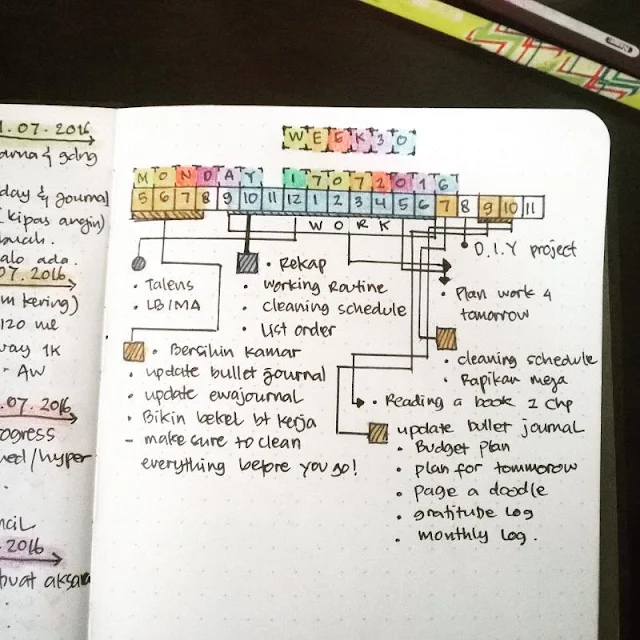 07.2016
day & journal
(kipas angin)
07.2016
kering)
120
1K
AW
.07.2016
/hyper
2016
WEEK 30
MONDAY 17072016
5 6 7 8 9 10 11 12 1 2 3 4 5 6 7 8 9 10 11
WORK
D.I.Y project
• Talens
• LB/MA
• Rekap
• working Routine
• cleaning schedule
• List order
• Plan work 4
tomorrow
• Bersihin kamar
• update bullet journal
• update ewajournal
• Bikin bekel bt kerja
- make sure to clean
everything before you go!
• cleaning schedule
• Rapikan meja
• Reading a book 1 chp
update bullet journal
• Budget plan
• plan for tommorow
• page a doodle
• gratitude log
• monthly log.